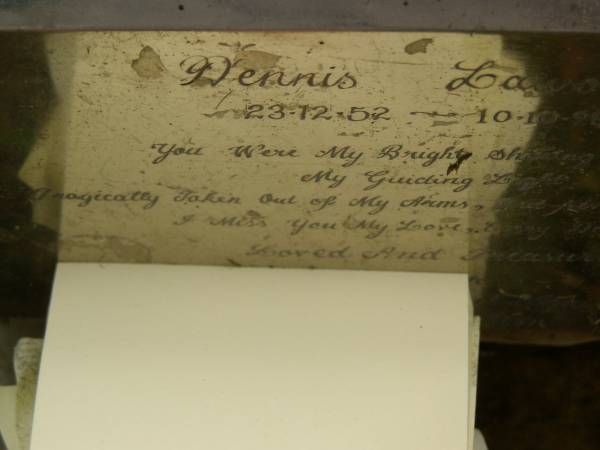 Dennis
23·12·52 — 10·10·
You Were My Bright Shining
My Guiding Light
Tragically Taken Out of My Arms,
I Miss You My Love, Every
Loved And